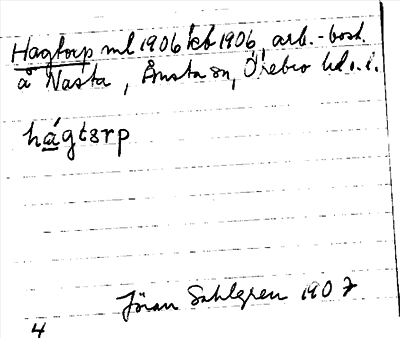 Hagtorp ml 1906 kb 1906, arb.-bost.
å Nasta, Ånsta sn, Örebro
hágtorp
Jöran Sahlgren 1907
4